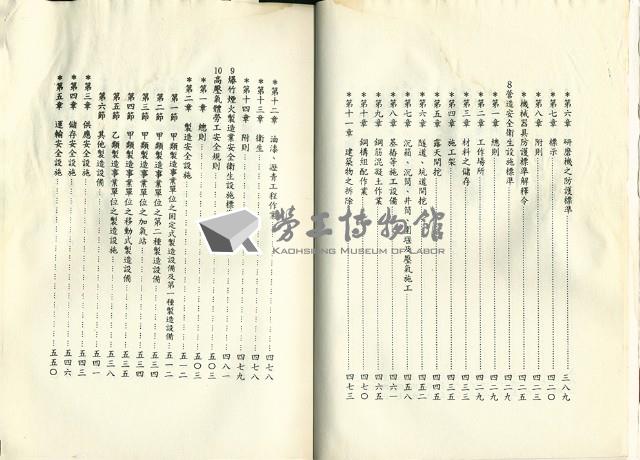 *第六章 研磨機之防護標準……三八九
*第七章 標示……四二〇
*第八章 附則……四二〇
*機械器具防護標準解釋令……四二五
8營造安全衛生設施標準……四二九
*第一章 總則……四二九
*第二章 工作場所……四二九
*第三章 材料之儲存……四三三
*第四章 施工架……四三五
*第五章 露天開挖……四四五
*第六章 隧道、坑道開挖……四五二
*第七章 沉箱、沉筒、井筒、圍堰及壓氣施工……四五五
*第八章 基樁等施工設備……四六一
*第九章 鋼筋混凝土作業……四六五
*第十章 鋼構組配作業……四七〇
*第十一章 建築物之拆除……四七三
*第十二章 油漆、瀝青工程作業……四七八
*第十三章 衛生……四七八
*第十四章 附則……四七九
9爆竹煙火製造業安全衛生設施標準……四八一
10高壓氣體勞工安全規則……五〇三
*第一章 總則……五〇三
*第二章 製造安全設施……五一二
第一節 甲類製造事業單位之固定式製造設備及第一種製造設備……五一二
第二節 甲類製造事業單位之第二種製造設備……五三四
第三節 甲類製造事業單位之加氣站……五三四
第四節 甲類製造事業單位之移動式製造設備……五三五
第五節 乙類製造事業單位之製造設施……五三八
第六節 其他製造設備……五四一
*第三章 供應安全設施……五四三
*第四章 儲存安全設施……五四六
*第五章 運輸安全設施……五五〇
勞工博物館
KAOHSIUNG MUSEUM OF LABOR